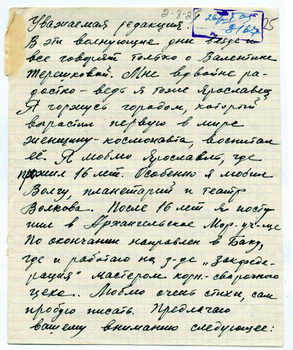 2-3-25
Уважаемая редакция!
В эти волнующие дни везде и
все говорят только о Валентине
Терешковой. Мне вдвойне ра-
достно - ведь я тоже Ярославец
Я горжусь городом, который
вырастил первую в мире
женщину-космонавта, воспитал
её. Я люблю Ярославль, где
прожил 16 лет. Особенно я любил
Волгу, планетарий и театр
Волкова. После 16 лет я посту
пил в Архангельское Мор. уч-ще
По окончании направлен в Баку,
где и работаю на з-де „Закфеде-
рация" мастером корп-сварочного
цеха. Люблю очень стихи, сам
пробую писать. Предлагаю
вашему вниманию следующее: